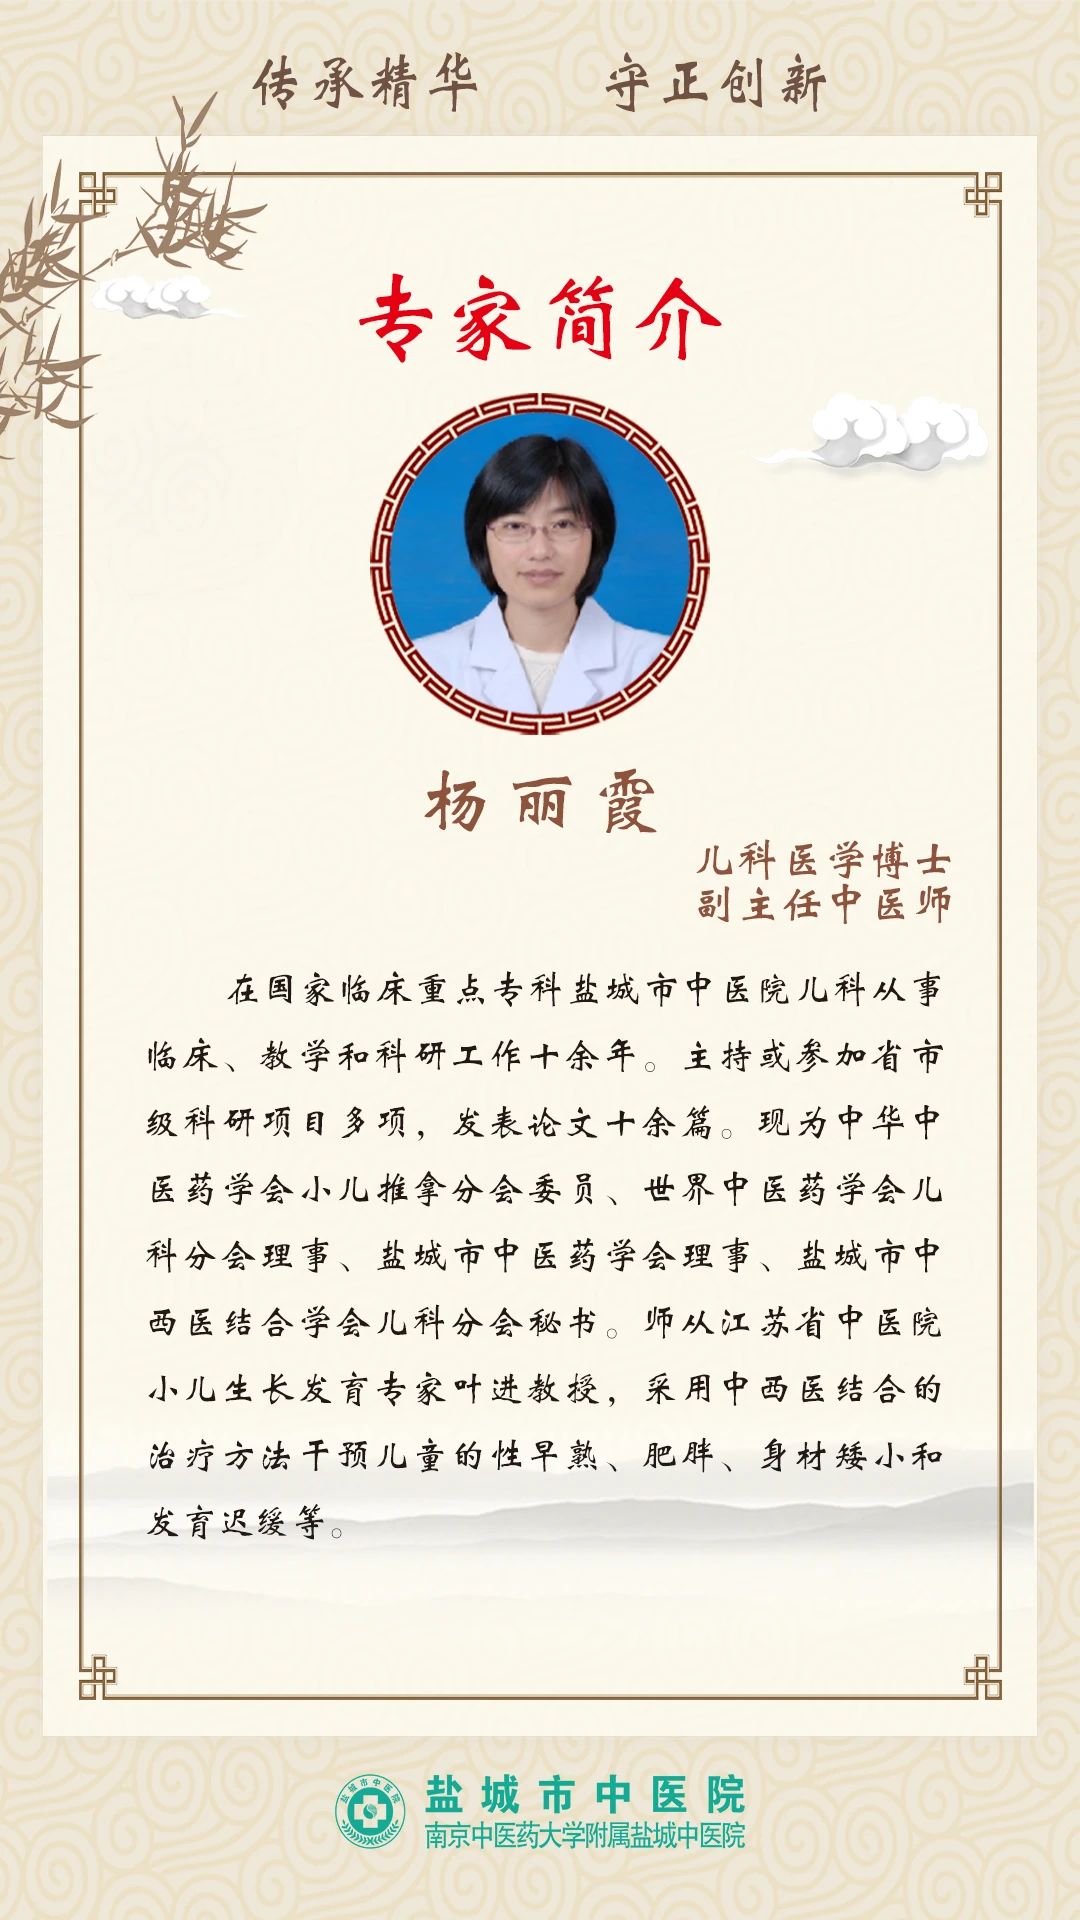 传承精华 守正创新
专家简介
杨丽霞
儿科医学博士
副主任中医师
在国家临床重点专科盐城市中医院儿科从事
临床、教学和科研工作十余年。主持或参加省市
级科研项目多项，发表论文十余篇。现为中华中
医药学会小儿推拿分会委员、世界中医药学会儿
科分会理事、盐城市中医药学会理事、盐城市中
西医结合学会儿科分会秘书。师从江苏省中医院
小儿生长发育专家叶进教授，采用中西医结合的
治疗方法干预儿童的性早熟、肥胖、身材矮小和
发育迟缓等。
盐城市中医院
盐城市中医院
南京中医药大学附属盐城中医院